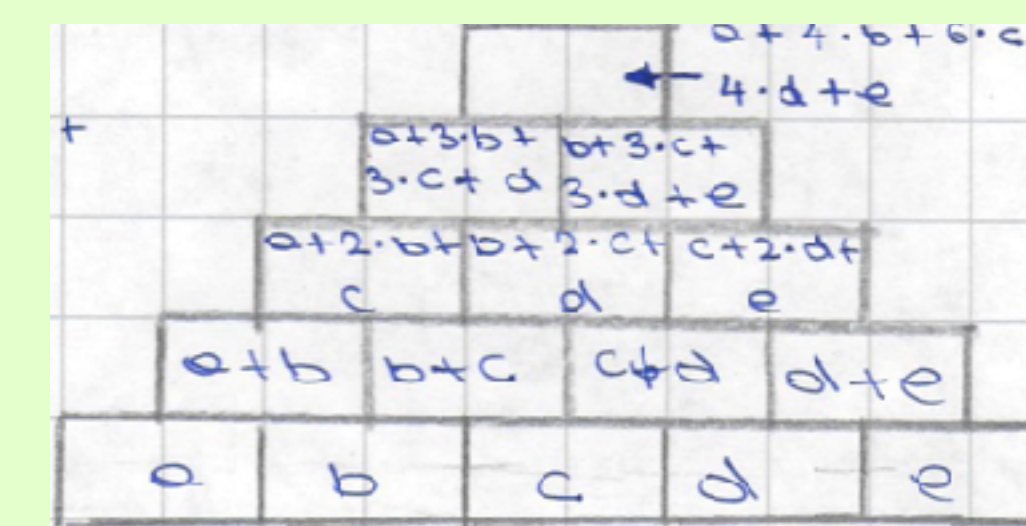 a + 4·b + 6·c
4·d + e
+
a+3·b+ b+3·c+
3·c+ d 3·d+e
a+2·b+ b+2·c+ c+2·d+
c d e
a+b b+c c+d d+e
a b c d e